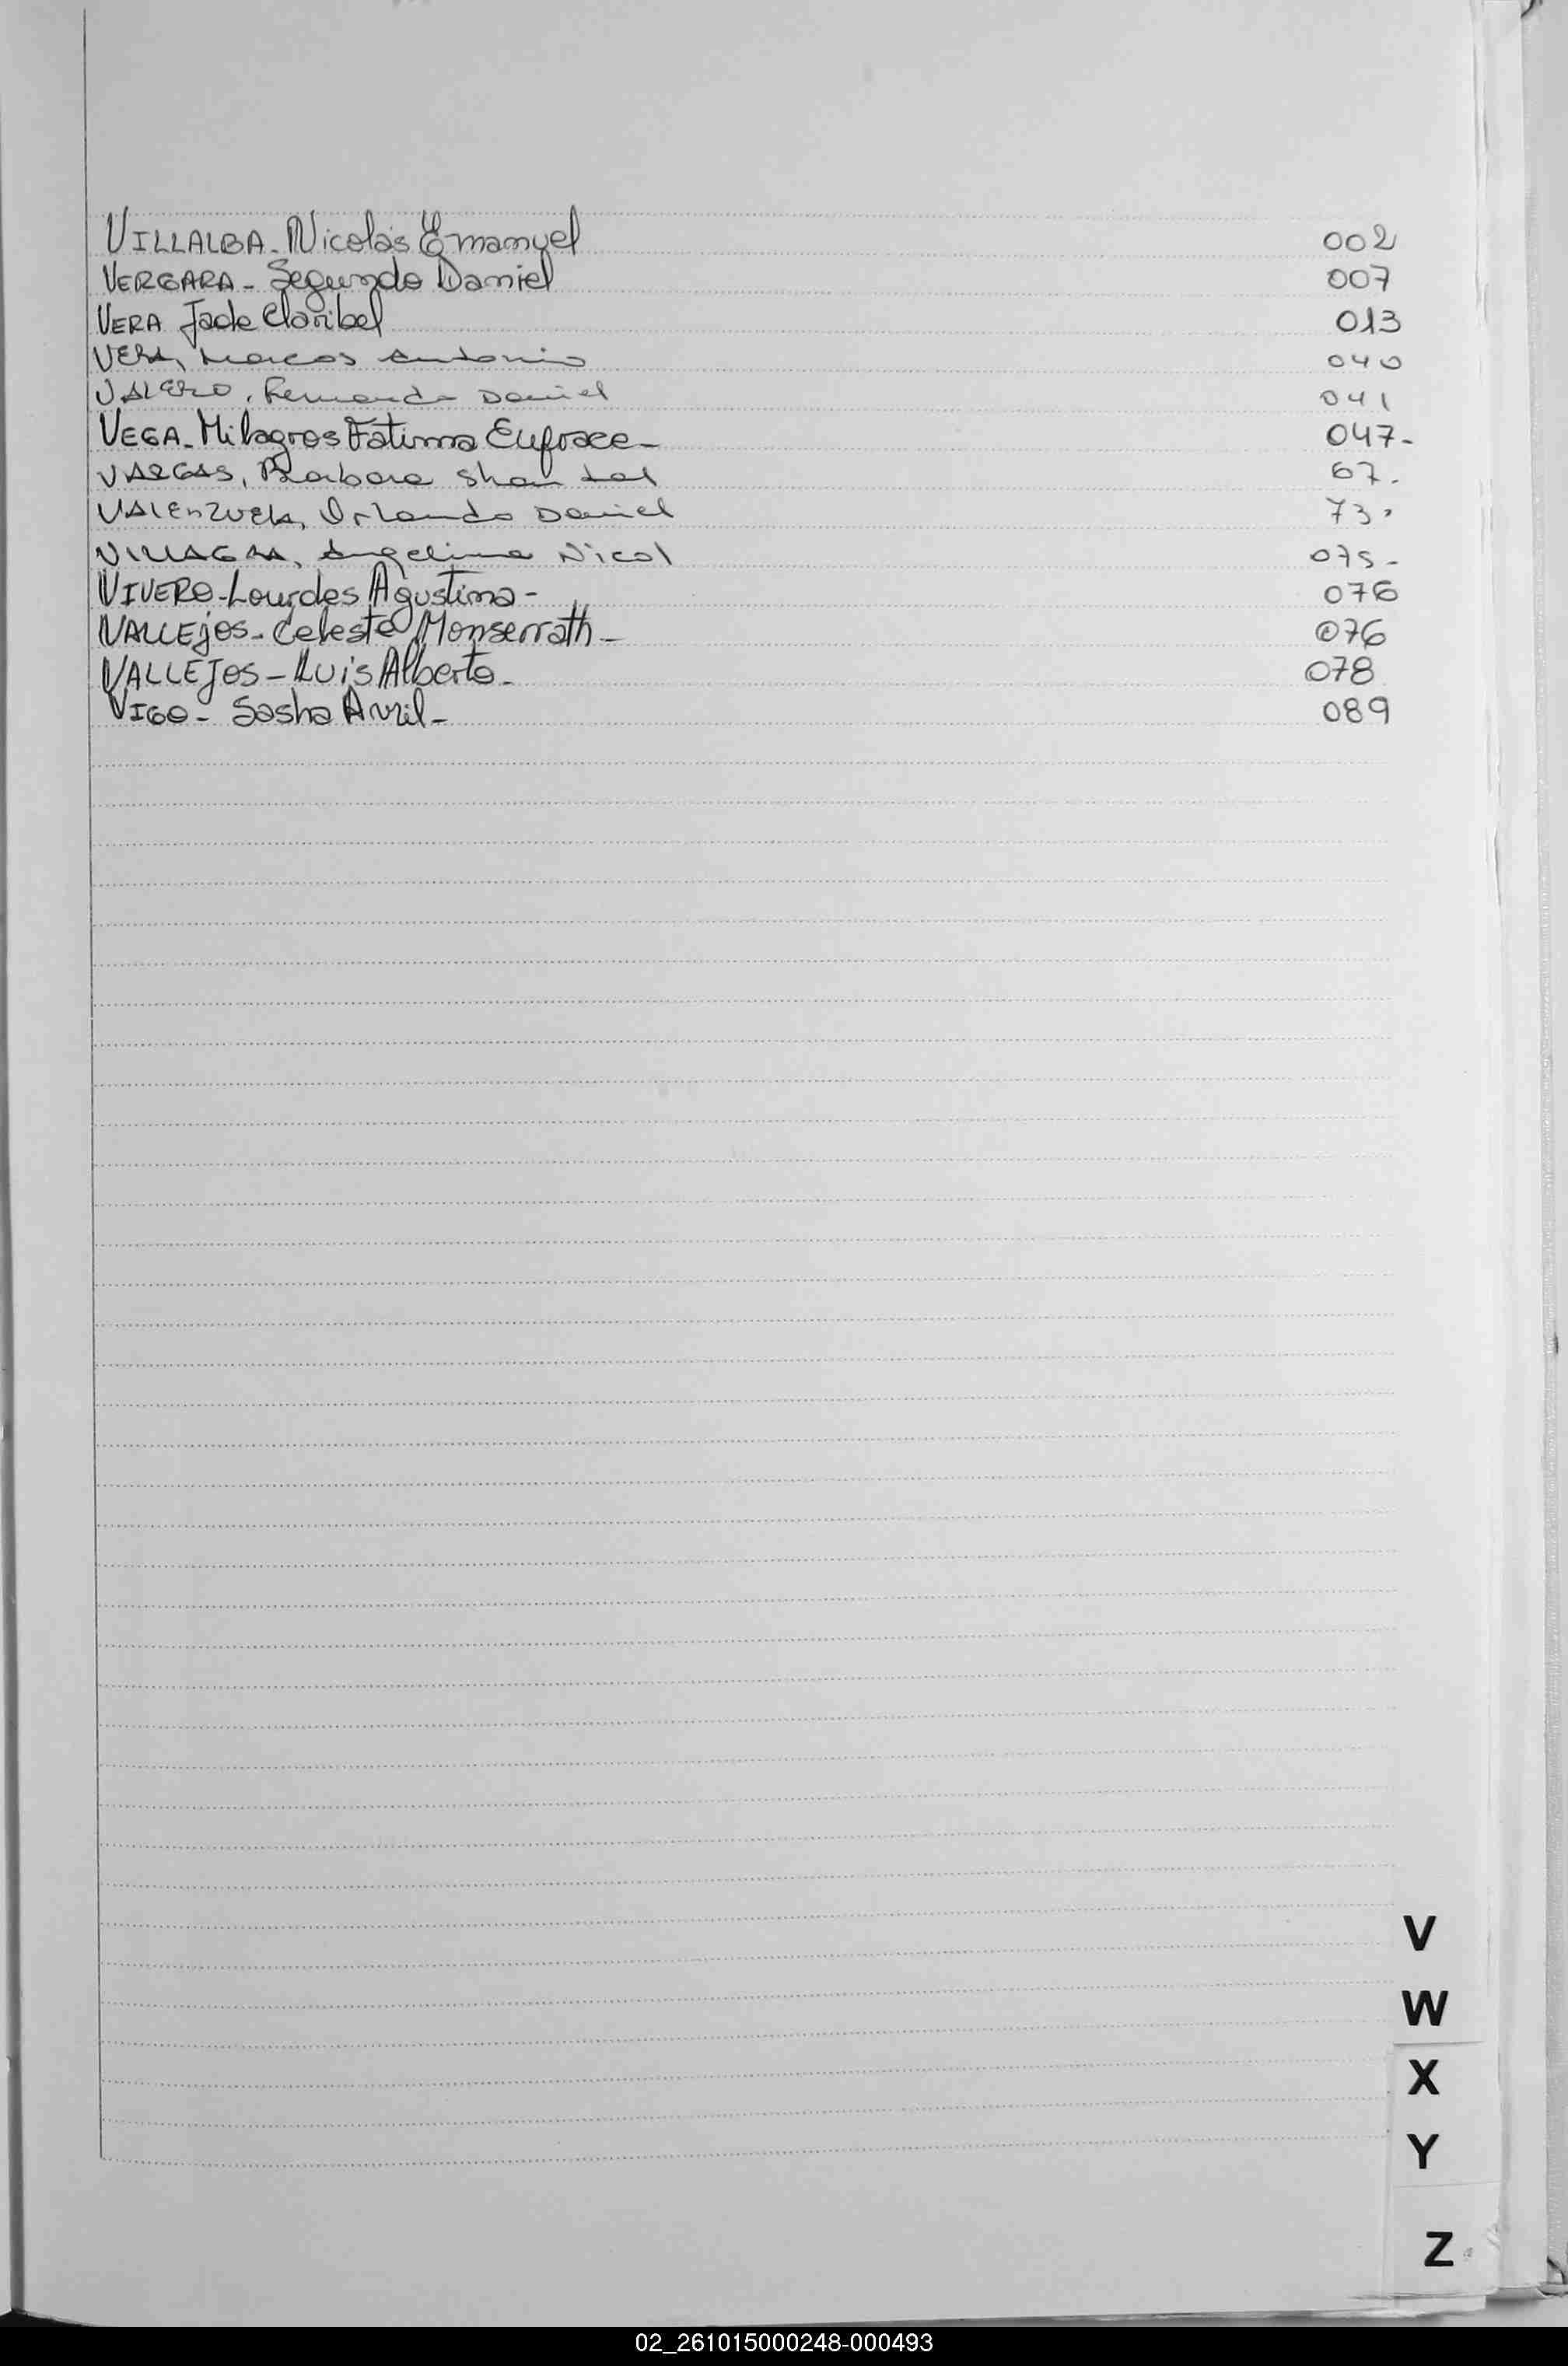 VILLALBA - Nicolás Emanuel 002
VERGARA - Segundo Daniel 007
VERA Jade Claribel 013
VERA, Marcos Antonio 040
VALERO, Fernando Daniel 041
VEGA - Milagros Fatima 047-
VARGAS, Barbara Shantal 67.
VALENZUELA, Orlando Daniel 73.
VILLAGRA, Angelina Nicol 075-
VIVERO - Lourdes Agustina - 076
VALLEJOS - Celeste Monserrath - 076
VALLEJOS - Luis Alberto - 078
VIGO - Sasha Avril - 089
V
W
X
Y
Z
02_261015000248-000493